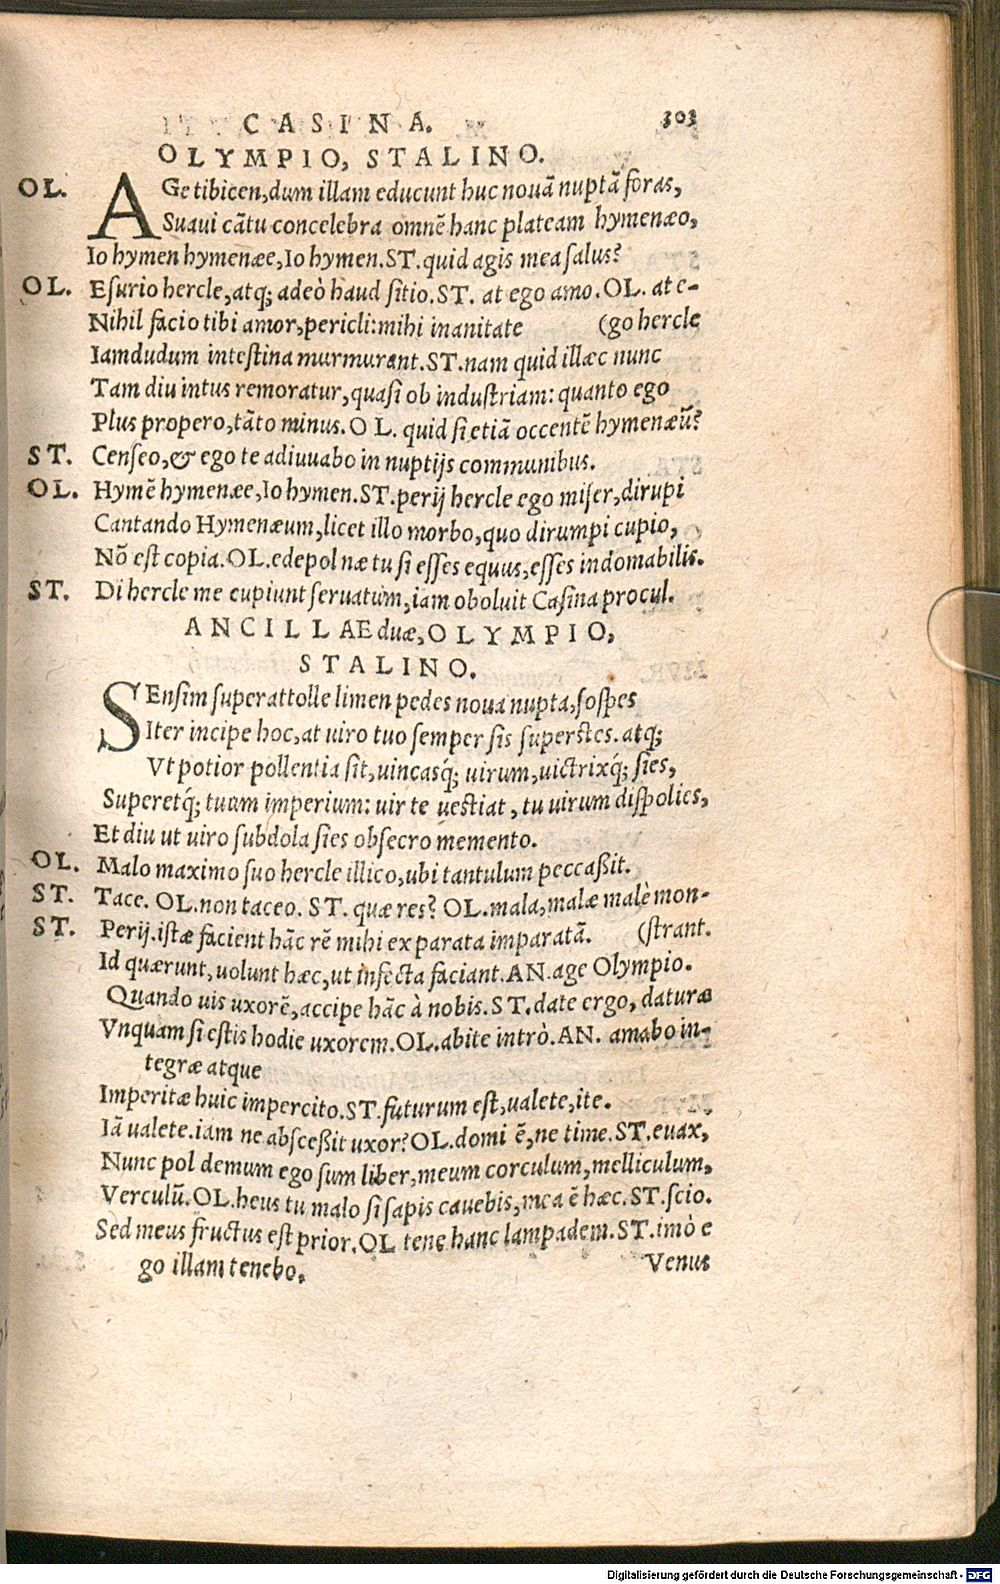 CASINA. 303
OLYMPIO, STALINO.
OL. AGe tibicen, dum illam educunt huc nouā nuptā foras,
Suaui cātu concelebra omnē hanc plateam hymenæo,
Io hymen hymenæe, Io hymen. ST. quid agis mea salus?
OL. Esurio hercle, atq; adeò haud sitio. ST. at ego amo. OL. at e-
Nihil facio tibi amor, pericli: mihi inanitate (go hercle
Iamdudum intestina murmurant. ST. nam quid illæc nunc
Tam diu intus remoratur, quasi ob industriam: quanto ego
Plus propero, tāto minus. OL. quid si etiā occentē hymenæū?
ST. Censeo, & ego te adiuuabo in nuptijs communibus.
OL. Hymē hymenæe, Io hymen. ST. perij hercle ego miser, dirupi
Cantando Hymenæum, licet illo morbo, quo dirumpi cupio,
Nō est copia. OL. edepol næ tu si esses equus, esses indomabilis.
ST. Di hercle me cupiunt seruatum, iam oboluit Casina procul.
ANCILLAE duæ, OLYMPIO,
STALINO.
SEnsim superattolle limen pedes noua nupta, sospes
Iter incipe hoc, at uiro tuo semper sis superstes. atq;
Vt potior pollentia sit, uincasq́; uirum, uictrixq́; sies,
Superetq́; tuum imperium: uir te uestiat, tu uirum dispolies,
Et diu ut uiro subdola sies obsecro memento.
OL. Malo maximo suo hercle illico, ubi tantulum peccaßit.
ST. Tace. OL. non taceo. ST. quæ res? OL. mala, malæ malè mon-
ST. Perij. istæ facient hāc rē mihi ex parata imparatā. (strant.
Id quærunt, uolunt hæc, ut infecta faciant. AN. age Olympio.
Quando uis uxorē, accipe hāc à nobis. ST. date ergo, daturæ
Vnquam si estis hodie uxorem. OL. abite intrò. AN. amabo in-
tegræ atque
Imperitæ huic impercito. ST. futurum est, ualete, ite.
Iā ualete. iam ne absceßit uxor? OL. domi ē, ne time. ST. euax,
Nunc pol demum ego sum liber, meum corculum, melliculum,
Verculū. OL. heus tu malo si sapis cauebis, mea ē hæc. ST. scio.
Sed meus fructus est prior. OL tene hanc lampadem. ST. imò e
go illam tenebo. Venus
Digitalisierung gefördert durch die Deutsche Forschungsgemeinschaft - DFG